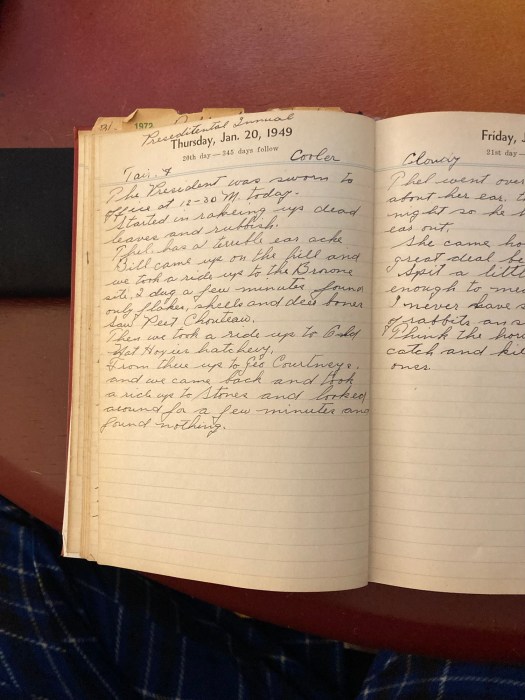 1972
Preseditental Inniual
Thursday, Jan. 20, 1949
20th day—345 days follow
Fair & Cooler
The President was sworn to
office at 12-30 M. today.
Started in rakeing up dead
leaves and rubbish.
Phel. has a terrible ear ache
Bill came up on the hill and
we took a ride up to the Broone
site, I dug a few minutes found
only flakes, shells and deer bones
saw Peet Chouteau.
Then we took a ride up to
hatchevy.
From there up to Geo Courtneys.
and we came back and took
a ride up to Stones and looked
around for a few minutes and
found nothing.
Friday, J
21st day—
Cloudy
Phel went over
about her ear. t
night so he s
ear out.
She came ho
great deal be
Spit a littl
enough to me
I never have s
of rabbits an s
Think the how
catch and kil
ones.